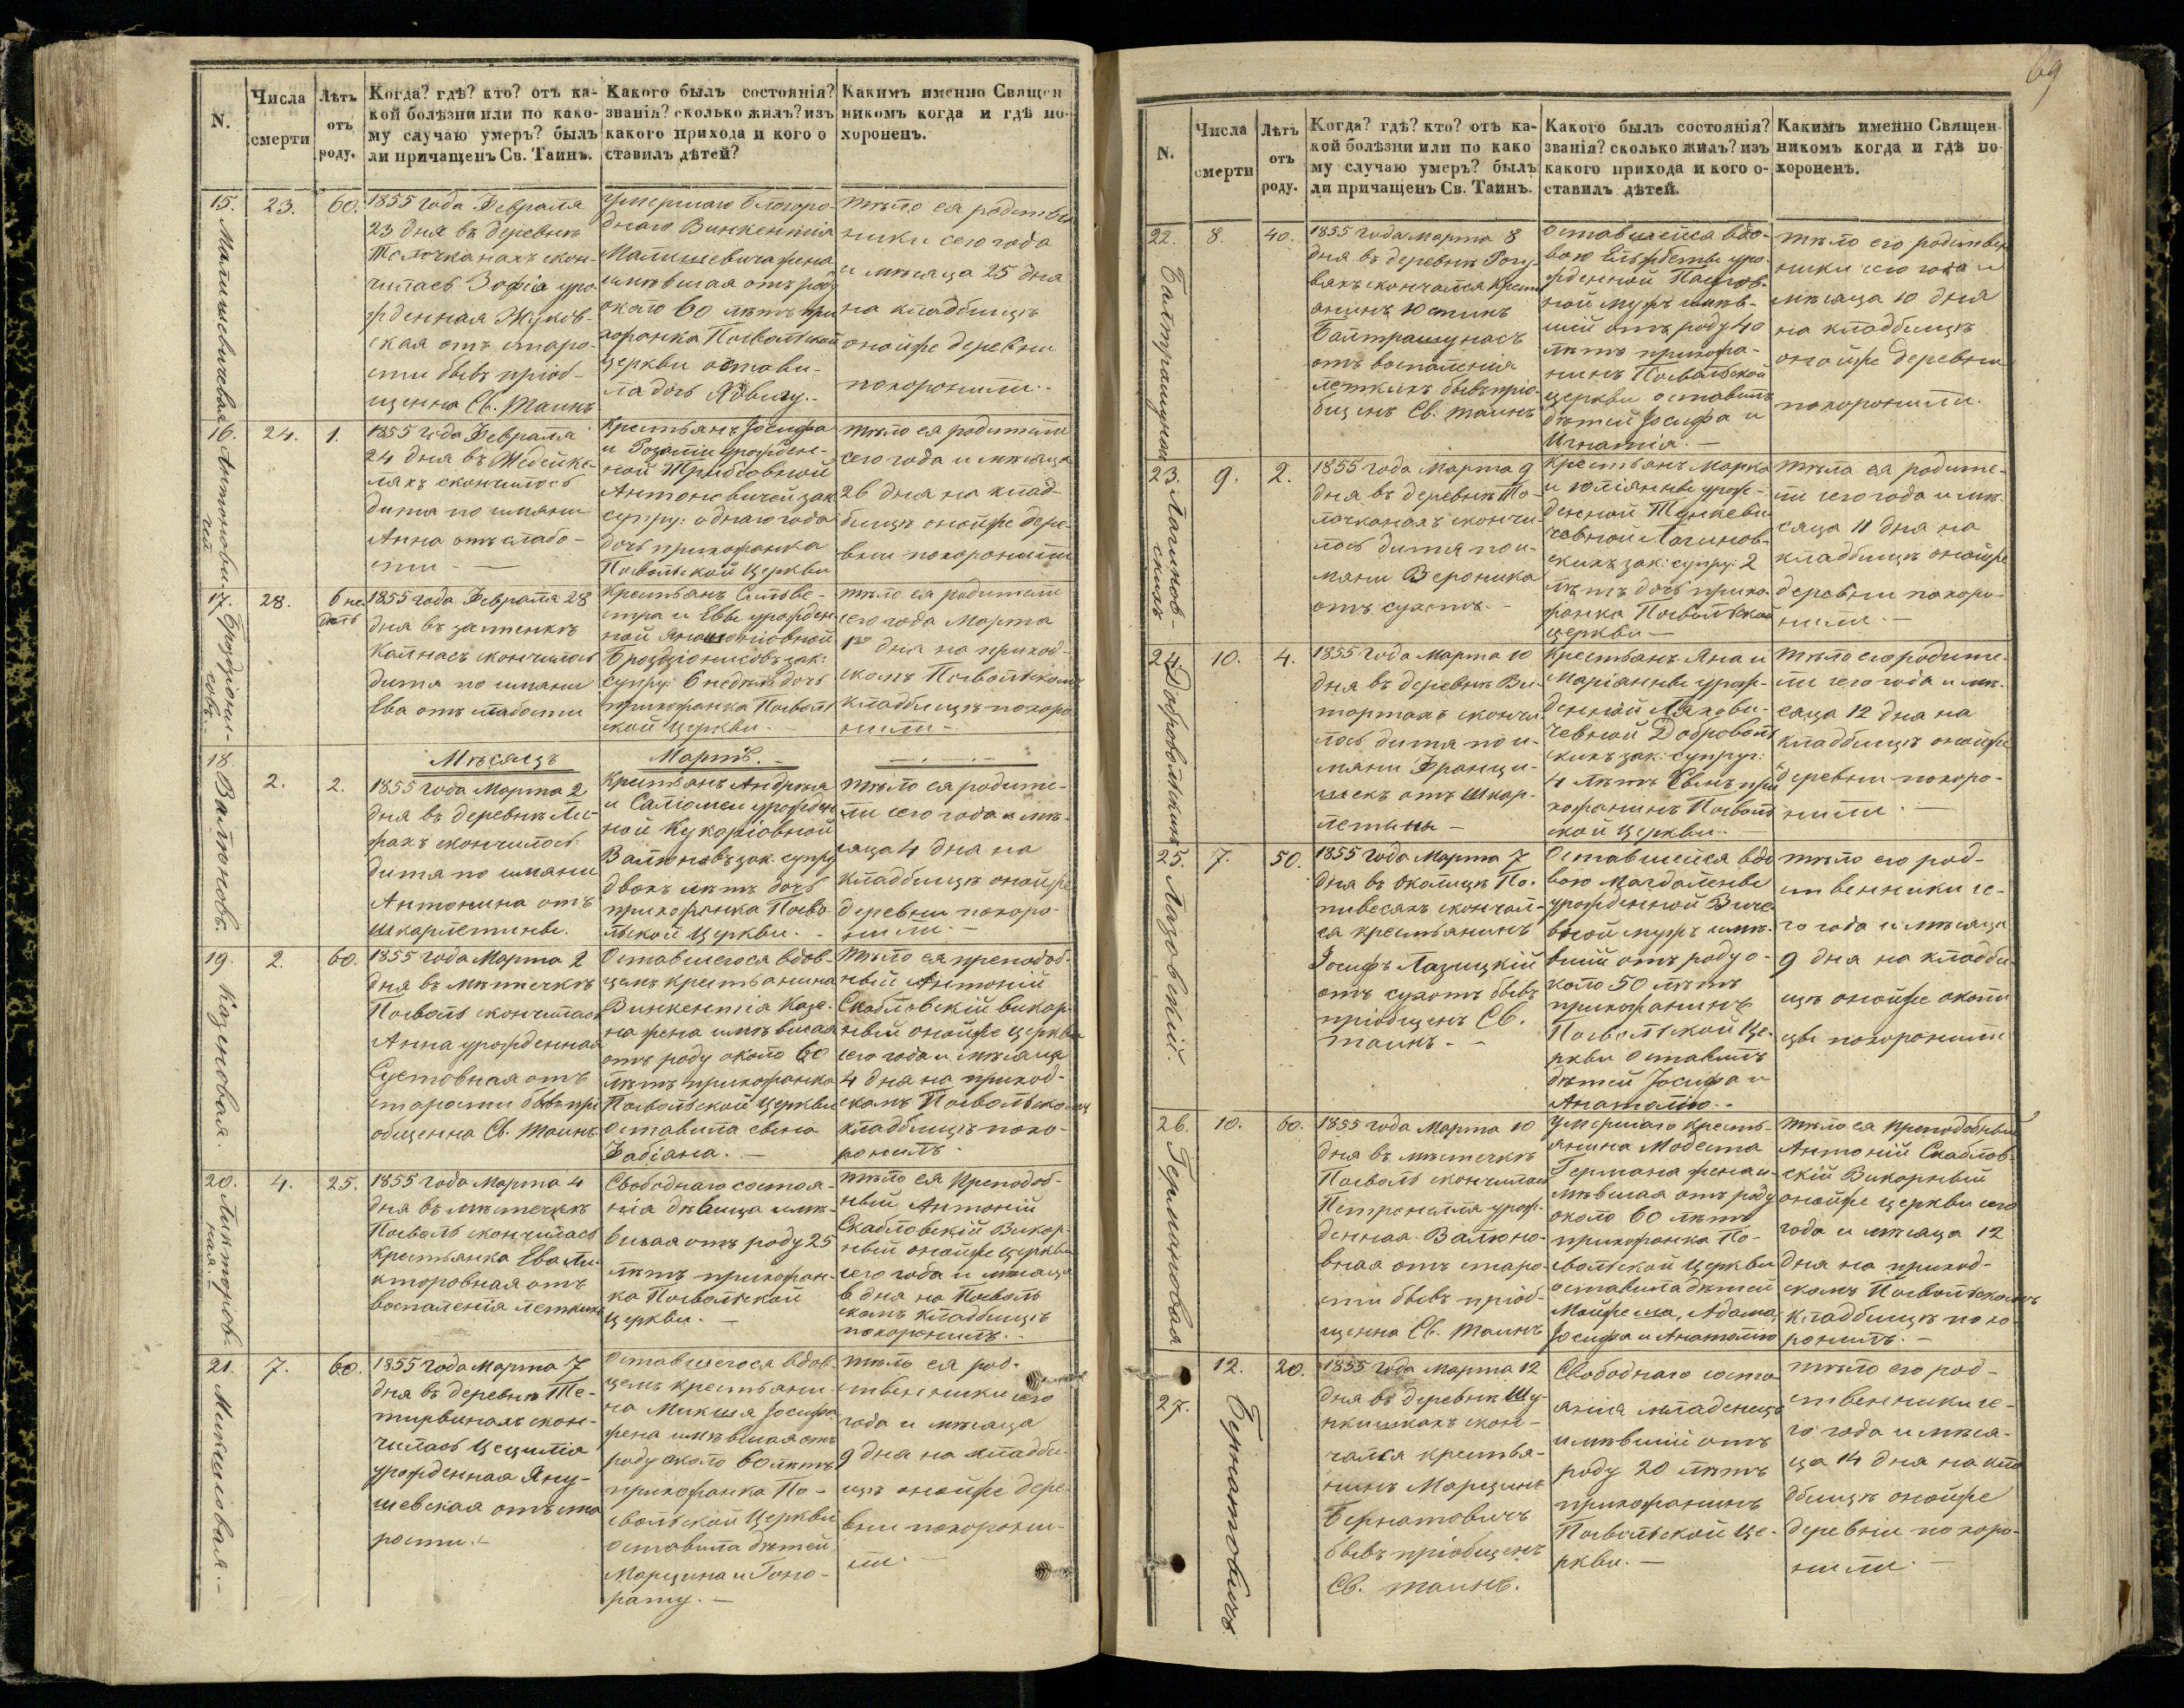 69
N.
Числа смерти
Лѣтъ отъ роду.
Когда? гдѣ? кто? отъ ка-
кой болѣзни или по како-
му случаю умеръ? былъ
ли причащенъ Св. Таинъ.
Какого былъ состоянія?
званія? сколько жилъ? изъ
какого прихода и кого о
ставилъ дѣтей?
Какимъ именно Священ
никомъ когда и гдѣ по-
хороненъ.
15.
23.
60.
1855 года Февраля
23 дня въ деревнѣ
скон-
чилась Зофія уро-
жденная Жуков-
ская отъ старо-
сти бывъ пріоб-
щенна Св. Таинъ
Умершаго благоро-
днаго Винкентія
Малишевича жена
имѣвшая отъ роду
около 60 лѣтъ при
хожанка Посвольской
церкви остави-
ла дочь Ядвигу.-
тѣло ея родствен
ники сего года
и мѣсяца 25 дня
на кладбищѣ
онойже деревни
похоронили.-
16.
24.
1.
1855 года Февраля
24 дня въ Медейке-
ляхъ скончилось
дитя по имяни
Анна отъ слабо-
сти -
Крестьянъ Іосифа
и Розаліи урожден-
ной
Антоновичей зак
супру: однаго года
дочь прихожанка
Посвольской Церкви
тѣло ея родители
сего года и мѣсяца
26 дня на клад-
бищѣ онойже дере-
вни похоронили
17.
28.
6 не
дѣль
1855 года Февраля 28
дня въ застенкѣ
Калнасъ скончилось
дитя по имяни
Ева отъ слабости
Крестьянъ Сильве-
стра и Евы урожден
ной
зак:
супру: 6 недѣль дочь
прихожанка Посволь
ской Церкви. -
тѣло ея родители
сего года Марта
1го дня на приход-
скомъ Посвольскомъ
кладбищѣ похоро
нили -
Мѣсяцъ
Мартъ. -
18
Валюновъ.
2.
2.
1855 года Марта 2
дня въ деревнѣ Ли-
фахъ скончилось
дитя по имяни
Антонина отъ
шкарлетины.
Крестьянъ Андрея
и Саліомеи урожден
ной
Валюновъ зак. супру
двохъ лѣтъ дочь
прихожанка Посво-
льской Церкви. -
тѣло ея родите-
ли сего года и мѣ-
сяца 4 дня на
кладбищѣ онойже
деревни похоро-
нили. -
19.
Казеновая.
2.
60.
1855 года Марта 2
дня въ мѣстечкѣ
Посволь скончилась
Анна урожденная
отъ
старости бывъ прі
общенна Св. Таинъ.
Оставшегося вдов-
цемъ крестьянина
Винкентія Казе-
на жена имѣвшая
отъ роду около 60
лѣтъ прихожанка
Посвольской Церкви
Оставила сына
Фабіана. -
Тѣло ея преподоб-
ный Антоній
Скабловскій викор-
ный онойже церкви
сего года и мѣсяца
4 дня на приход-
скомъ Посвольскомъ
кладбищѣ похо-
ронилъ.
20.
Ликторов-
ная. -
4.
25.
1855 года Марта 4
дня въ мѣстечкѣ
Посволь скончилась
крестьянка Ева Ли-
кторовная отъ
воспаленія легкихъ
Свободнаго состоя-
нія дѣвица имѣ-
вшая отъ роду 25
лѣтъ прихожан-
ка Посвольской
церкви. -
тѣло ея Преподоб-
ный Антоній
Скабловскій Викор-
ный онойже церкви
сего года и мѣсяца
6 дня на Посволь
скомъ кладбищѣ
похоронилъ. -
21.
Микшовая. -
7.
60.
1855 года Марта 7
дня въ деревнѣ Те-
тирвинахъ скон-
чилась Цецилія
урожденная Яну-
шевская отъ ста
рости. -
Оставшегося вдов-
цемъ крестьяни-
на Микша Іосифа
жена имѣвшая отъ
роду около 60 лѣтъ
прихожанка По-
свольской Церкви
оставила дѣтей
Марцина и Гоно-
рату. -
тѣло ея род-
ственники сего
года и мѣсяца
9 дня на кладби-
щѣ онойже дере-
вни похорони-
ли. -
N.
Числа смерти
Лѣтъ отъ роду.
Когда? гдѣ? кто? отъ ка-
кой болѣзни или по како
му случаю умеръ? былъ
ли причащенъ Св. Таинъ.
Какого былъ состоянія?
званія? сколько жилъ? изъ
какого прихода и кого о-
ставилъ дѣтей.
Какимъ именно Священ-
никомъ когда и гдѣ по-
хороненъ.
22.
8.
40.
1855 года Марта 8
дня въ деревнѣ
скончался крести
анинъ Юстинъ
Балтрашунасъ
отъ воспаленія
легкихъ бывъ прio-
бщенъ Св. таинъ
Оставшейся вдо-
вою Ельжбеты уро-
жденной
ной мужъ имѣв-
шій отъ роду 40
лѣтъ прихожа-
нинъ Посвольской
церкви оставилъ
дѣтей Іосифа и
Игнатія. -
тѣло его родствен
ники сего года и
мѣсяца 10 дня
на кладбищѣ
онойже деревни
похоронили.
23.
Логинов-
скихъ
9.
2.
1855 года Марта 9
дня въ деревнѣ То-
лочканахъ скончи-
лось дитя по и-
мяни Вероника
отъ сухотъ. -
Крестьянъ Марка
и Юліянны урож-
денной Тункеви-
чевной Логинов-
скихъ зак: супру: 2
лѣтъ дочь прихо-
жанка Посвольской
церкви -
тѣла ея родите-
ли сего года и мѣ-
сяца 11 дня на
кладбищѣ онойже
деревни похоро-
нили. -
24.
Добровольскихъ
10.
4.
1855 года Марта 10
дня въ деревнѣ Ви-
тортахъ скончи-
лось дитя по и-
мяни Франци-
шекъ отъ шкар-
летины -
Крестьянъ Яна и
Маріанны урож-
денной Ляхови-
чевной Доброволь
скихъ зак: супруг:
4 лѣтъ Сынъ при
хожанинъ Посволь
ской Церкви. -
тѣло его родите-
ли сего года и мѣ-
сяца 12 дня на
кладбищѣ онойже
деревни похоро-
нили. -
25.
7.
50.
1855 года Марта 7
дня въ околицѣ По-
пивесахъ скончал-
ся крестьянинъ
Іосифъ Лазицкій
отъ сухотъ бывъ
пріобщенъ Св.
таинъ. -
Оставшейся вдо
вою Магдалены
урожденной
вной мужъ имѣ-
вшій отъ роду о-
коло 50 лѣтъ
прихожанинъ
Посвольской Це-
ркви Оставилъ
дѣтей Іосифа и
Анатолію. -
тѣло его род-
ственники се-
го года и мѣсяца
9 дня на кладби-
щѣ онойже околи
цы похоронили
26.
Германовая
10.
60.
1855 года Марта 10
дня въ мѣстечкѣ
Посволь скончилась
Петронелля урож-
денная Валюно-
вная отъ старо
сти бывъ пріоб-
щенна Св. таинъ
Умершаго кресть-
янина Модеста
Германа жена и-
мѣвшая отъ роду
около 60 лѣтъ
прихожанка По-
свольской Церкви
оставила дѣтей
Адама,
Іосифа и Анатолію
тѣло ея преподобный
Антоній Скаблов-
скій Викорный
онойже церкви сего
года и мѣсяца 12
дня на приход-
скомъ Посвольскомъ
кладбищѣ похо-
ронилъ. -
27.
Бернатовичъ
12.
20.
1855 года Марта 12
дня въ деревнѣ Шу-
нкишкахъ скон-
чался крестья-
нинъ Марцинъ
Бернатовичъ
бывъ пріобщенъ
Св. таинъ.
Свободнаго состо
янія младенецъ
имѣвшій отъ
роду 20 лѣтъ
прихожанинъ
Посвольской Це-
ркви. -
тѣло его род-
ственники се-
го года и мѣся-
ца 14 дня на кла
дбищѣ онойже
деревни похоро-
нили -